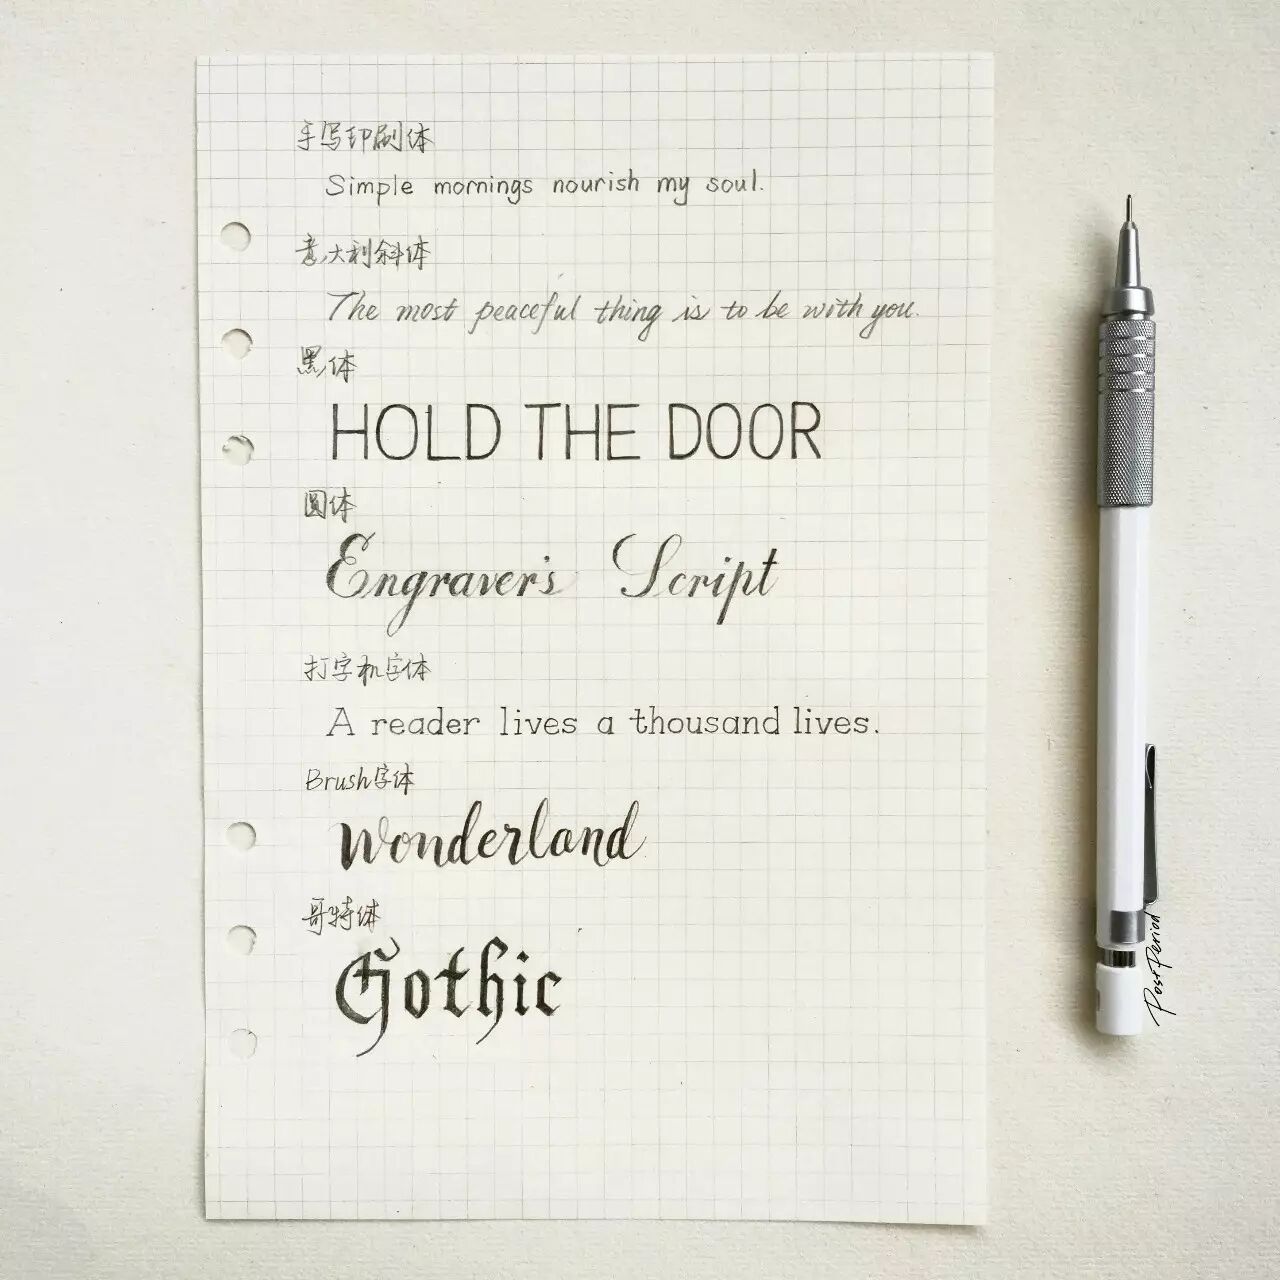 手写印刷体
Simple mornings nourish my soul.
意大利斜体
The most peaceful thing is to be with you.
黑体
HOLD THE DOOR
圆体
Engraver's Script
打字机字体
A reader lives a thousand lives.
Brush字体
Wonderland
哥特体
Gothic
PostPeriod